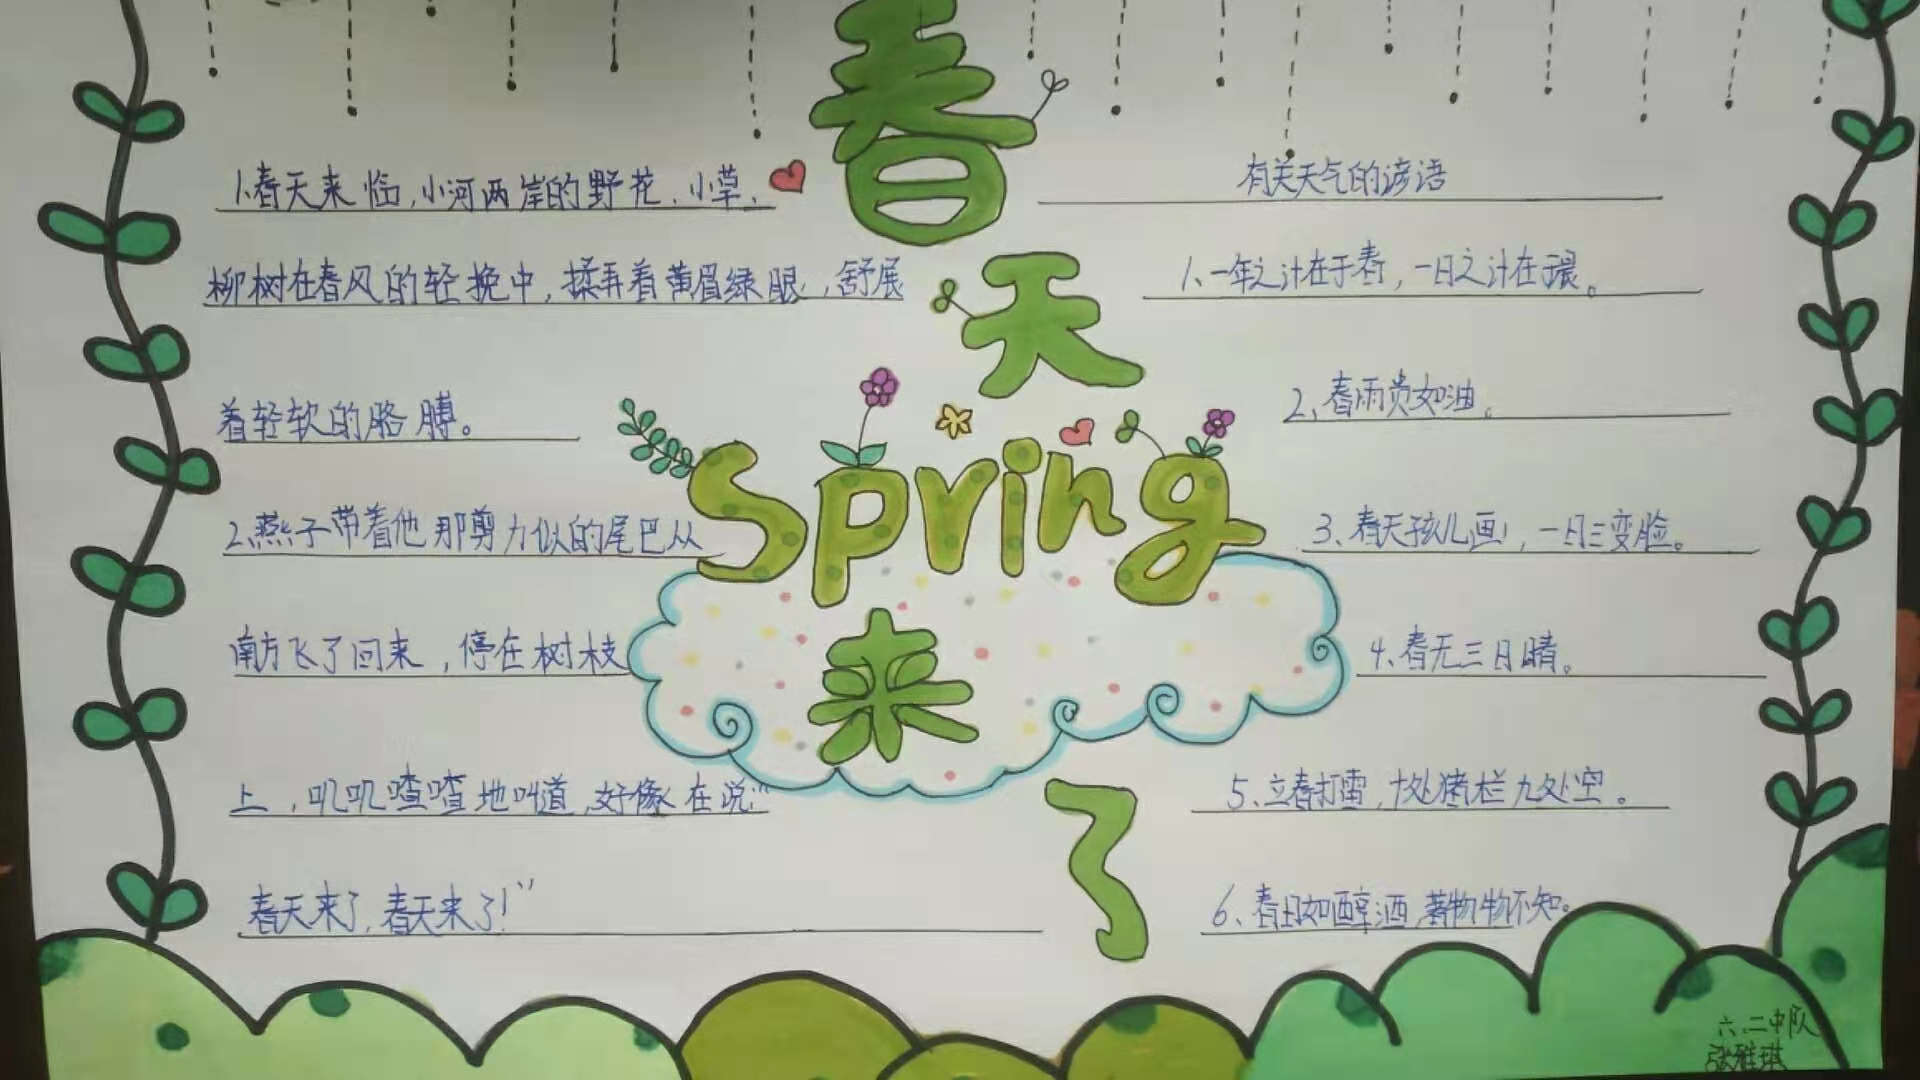 春天来了
Spring
1.春天来临,小河两岸的野花、小草、
柳树在春风的轻挽中,揉弄着黄眉绿眼,舒展
着轻软的胳膊。
2.燕子带着他那剪力似的尾巴从
南方飞了回来,停在树枝
上,叽叽喳喳地叫道,好像在说“
春天来了,春天来了!”
有关天气的谚语
1、一年之计在于春,一日之计在于晨。
2、春雨贵如油。
3、春天孩儿画,一日三变脸。
4、春无三日晴。
5、立春打雷,十处猪栏九处空。
6、春日如醇酒,著物物不知。
六.二中队
张雅琪